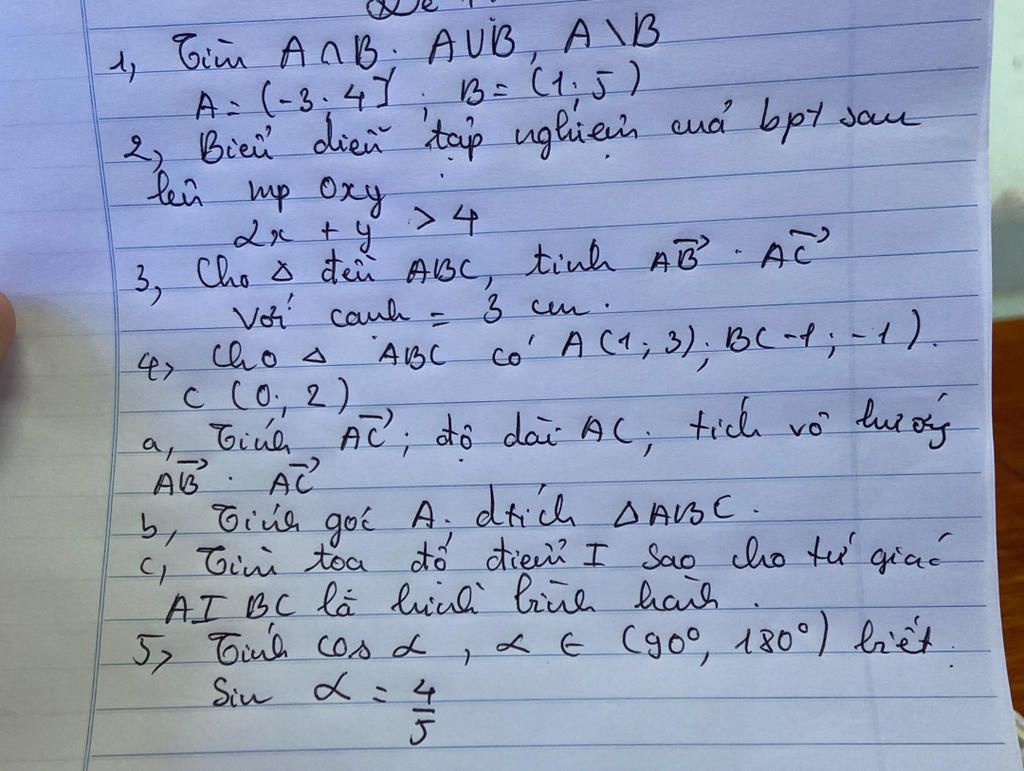 1, Tìm A∩B. A∪B, A\B
A = (-3; 4]; B = (1; 5)
2, Biểu diễn tập nghiệm của bpt sau
lên mp Oxy
2x + y > 4
3, Cho Δ đều ABC, tính \overrightarrow{AB} · \overrightarrow{AC}
Với cạnh = 3 cm.
4, Cho Δ ABC có A(1; 3); B(-1; -1).
C (0; 2)
a, Tính \overrightarrow{AC}; độ dài AC; tích vô hướng
\overrightarrow{AB} · \overrightarrow{AC}
b, Tính góc A. dtích ΔABC.
c, Tìm tọa độ điểm I sao cho tứ giác
AIBC là hình bình hành.
5, Tính cos α, α ∈ (90°, 180°) biết
Sin α = 4/5